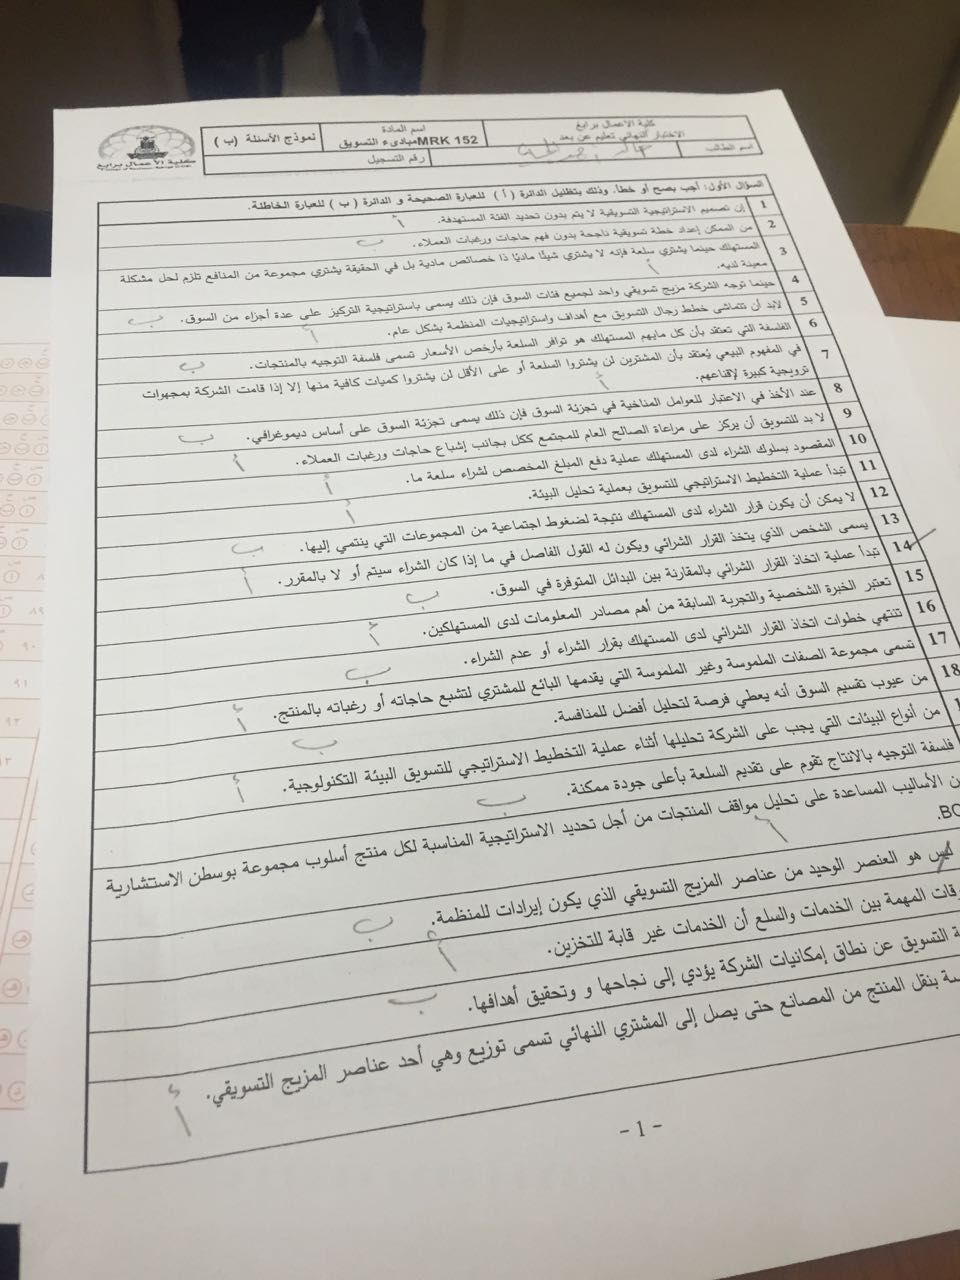 كلية الأعمال برابغ
الاختبار النهائي تعليم عن بعد
اسم المادة
MRK 152 مبادىء التسويق
نموذج الأسئلة (ب)
اسم الطالب
رقم التسجيل
كلية الأعمال برابغ
السؤال الأول: أجب بصح أو خطأ. وذلك بتظليل الدائرة (أ) للعبارة الصحيحة و الدائرة (ب) للعبارة الخاطئة.
1 إن تصميم الاستراتيجية التسويقية لا يتم بدون تحديد الفئة المستهدفة. أ
2 من الممكن إعداد خطة تسويقية ناجحة بدون فهم حاجات ورغبات العملاء. ب
3 المستهلك حينما يشتري سلعة فإنه لا يشتري شيئًا ماديًا ذا خصائص مادية بل في الحقيقة يشتري مجموعة من المنافع تلزم لحل مشكلة
معينة لديه. أ
4 حينما توجه الشركة مزيج تسويقي واحد لجميع فئات السوق فإن ذلك يسمى باستراتيجية التركيز على عدة أجزاء من السوق. ب
5 لابد أن تتماشى خطط رجال التسويق مع أهداف واستراتيجيات المنظمة بشكل عام. أ
6 الفلسفة التي تعتقد بأن كل مايهم المستهلك هو توافر السلعة بأرخص الأسعار تسمى فلسفة التوجيه بالمنتجات. ب
7 في المفهوم البيعي يُعتقد بأن المشترين لن يشتروا السلعة أو على الأقل لن يشتروا كميات كافية منها إلا إذا قامت الشركة بمجهوات
ترويجية كبيرة لإقناعهم. أ
8 عند الأخذ في الاعتبار للعوامل المناخية في تجزئة السوق فإن ذلك يسمى تجزئة السوق على أساس ديموغرافي. ب
9 لا بد للتسويق أن يركز على مراعاة الصالح العام للمجتمع ككل بجانب إشباع حاجات ورغبات العملاء. أ
10 المقصود بسلوك الشراء لدى المستهلك عملية دفع المبلغ المخصص لشراء سلعة ما. أ
11 تبدأ عملية التخطيط الاستراتيجي للتسويق بعملية تحليل البيئة. أ
12 لا يمكن أن يكون قرار الشراء لدى المستهلك نتيجة لضغوط اجتماعية من المجموعات التي ينتمي إليها. ب
13 يسمى الشخص الذي يتخذ القرار الشرائي ويكون له القول الفاصل في ما إذا كان الشراء سيتم أو لا بالمقرر. أ
14 تبدأ عملية اتخاذ القرار الشرائي بالمقارنة بين البدائل المتوفرة في السوق. ب
15 تعتبر الخبرة الشخصية والتجربة السابقة من أهم مصادر المعلومات لدى المستهلكين. أ
16 تنتهي خطوات اتخاذ القرار الشرائي لدى المستهلك بقرار الشراء أو عدم الشراء. ب
17 تسمى مجموعة الصفات الملموسة وغير الملموسة التي يقدمها البائع للمشتري لتشبع حاجاته أو رغباته بالمنتج. أ
18 من عيوب تقسيم السوق أنه يعطي فرصة لتحليل أفضل للمنافسة. ب
من أنواع البيئات التي يجب على الشركة تحليلها أثناء عملية التخطيط الاستراتيجي للتسويق البيئة التكنولوجية. أ
فلسفة التوجيه بالانتاج تقوم على تقديم السلعة بأعلى جودة ممكنة. ب
الأساليب المساعدة على تحليل مواقف المنتجات من أجل تحديد الاستراتيجية المناسبة لكل منتج أسلوب مجموعة بوسطن الاستشارية
هو العنصر الوحيد من عناصر المزيج التسويقي الذي يكون إيرادات للمنظمة. ب
المهمة بين الخدمات والسلع أن الخدمات غير قابة للتخزين. أ
التسويق عن نطاق إمكانيات الشركة يؤدي إلى نجاحها و وتحقيق أهدافها. ب
بنقل المنتج من المصانع حتى يصل إلى المشتري النهائي تسمى توزيع وهي أحد عناصر المزيج التسويقي. أ
- 1 -